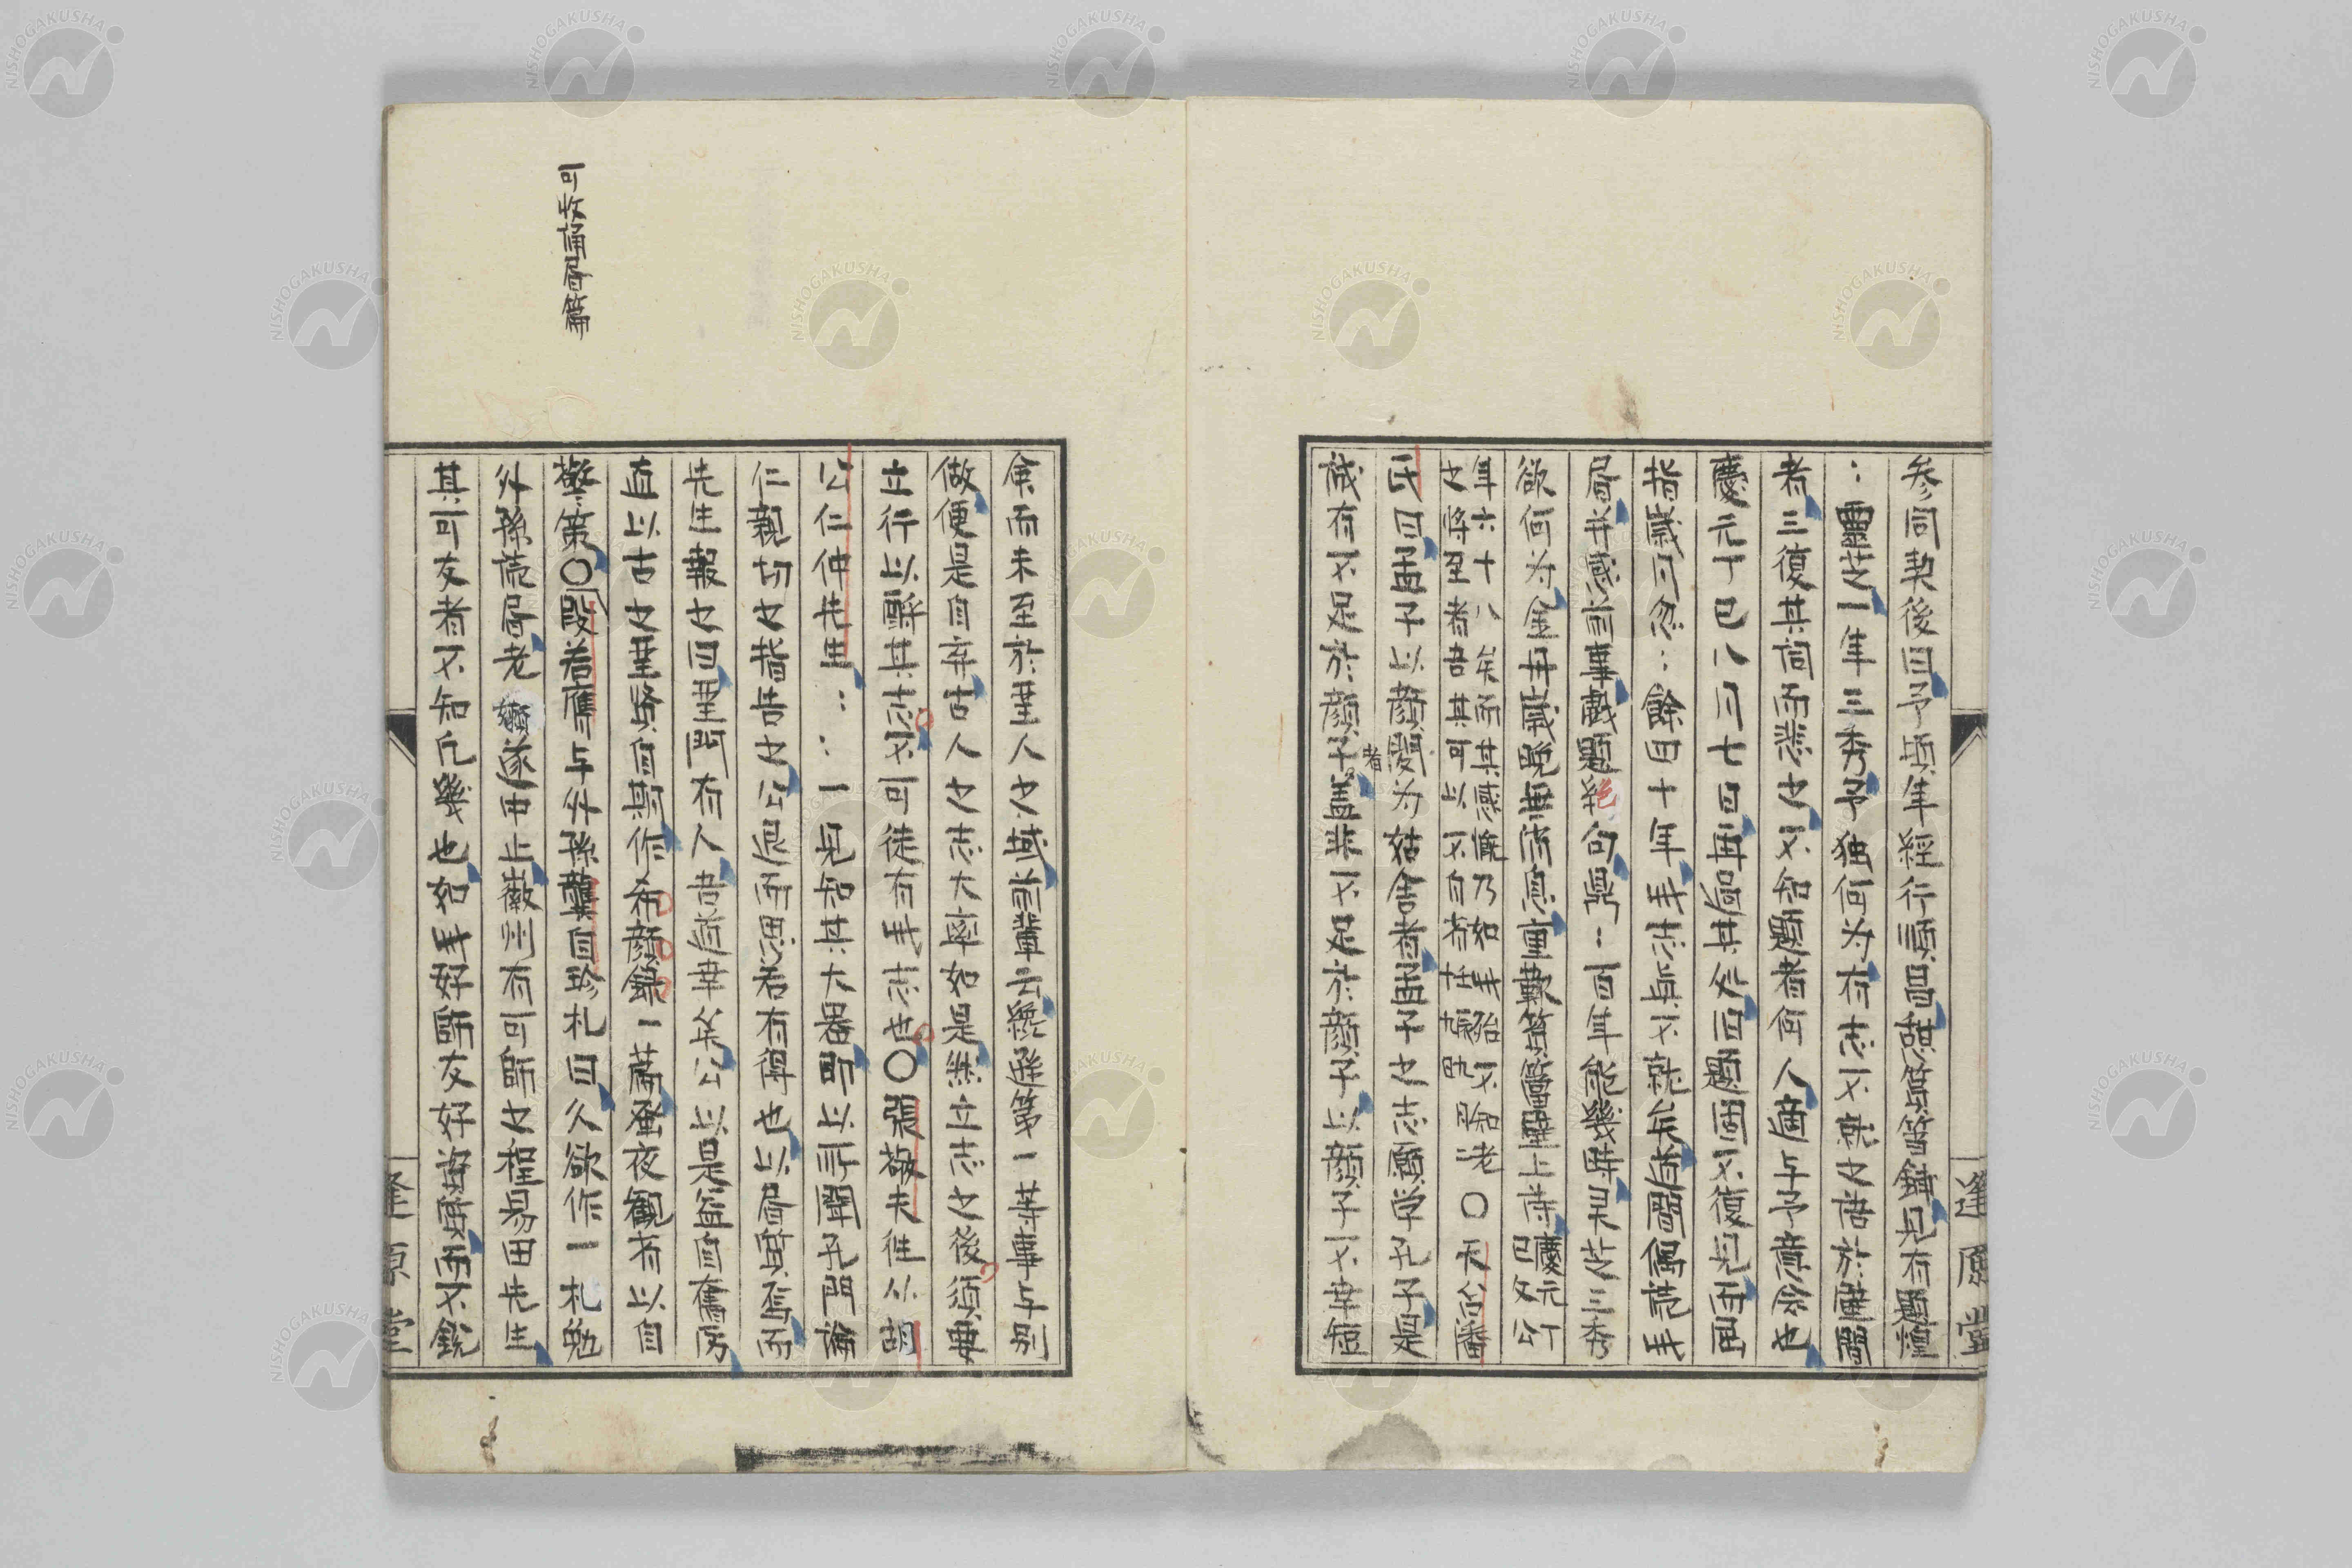 参同契後曰予頃年経行順昌憩篔簹鋪見有題煌
：霊芝一年三秀予独何为有志不就之語於壁間
者三復其詞而悲之不知題者何人適与予意会也
慶元丁巳八月七日再過其处旧題固不復見而屈
指歳月忽：餘四十年此志真不就矣道間偶読此
書并感前事戯題絶句鼎：百年能幾時灵芝三秀
欲何为金丹歳晩無消息重歎篔簹壁上詩慶元丁
巳文公
年六十八矣而其感慨乃如此殆不知老○天台潘
之将至者吾其可以不自省
氏曰孟子以顔閔为姑舎者孟子之志願学孔子是
誠有不足於顔子者盖非不足於顔子以顔子不幸短
逢原堂
余而未至於聖人之域前輩云纔遜第一等事与別
做便是自棄古人之志大率如是然立志之後須要
立行以酬其志不可徒有此志也○張敬夫従以胡
公仁仲先生：：一見知其大器即以所聞孔門論
仁親切之指告之公退而思若有得也以書質焉而
先生報之曰聖門有人吾道幸矣公以是益自奮厉
直以古之聖賢自期作希顔錄一篇蚤夜観省以自
可收誦書篇
警策○段若膺与外孫龔自珍札曰久欲作一札勉
外孫読書老嬾遂中止徽州有可師之程易田先生
其可友者不知凡幾也如此好師友好資質而不鋭
逢原堂